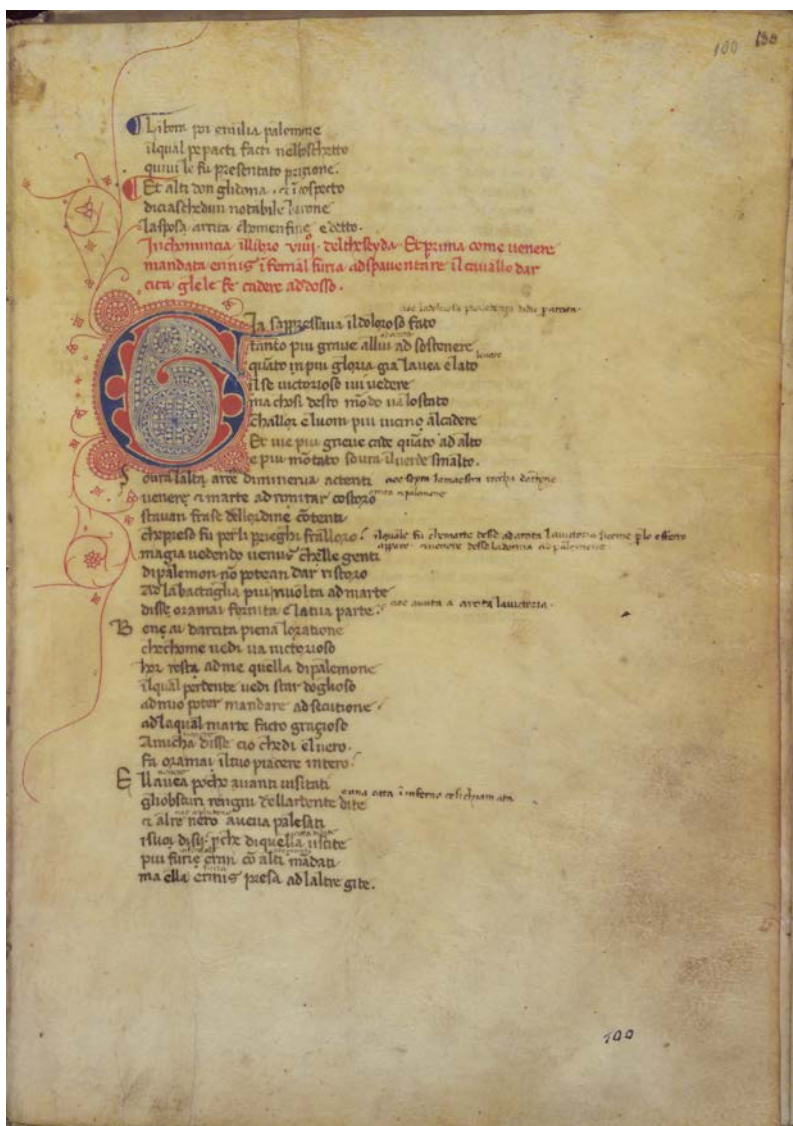 100 100
Libera poi emilia palemone
ilqual p epacti facti nelboschetto
quiui le fu presentato prigione.
Et alti don glidona. a
diciaschedun notabile barone
lasposa arcita chomenfine e detto.
Inchomincia illibro viiij. deltheseyda. Et prima come uenere
mandata erinis ifernal furia adspauentare il cauallo dar
cita glele fe cadere addosso.
Gia sappressaua il doloroso fato
tanto piu graue allui ad sostenere
quato inpiu gloria gia lauea elato
il se uictorioso iui uedere
ma chosi desto modo ua lostato
challor e luom piu uicino alcadere
Et uie piu grieue cade quato ad alto
e piu motato soura iluerde smalto.
Soura lalta arce diminerua actenti
uenere a marte adrimirar costoro
stauan fra se dellordine coteti
chopreso fu perli prieghi fralloro
magia uedendo uenus chelle genti
dipalemon no potean dar ristoro
Ad la bactaglia piu riuolta ad marte
disse oramai fornita e latua parte.
cioe auuta a arcita lauictoria.
Bene ai darcita piena loratione
chechome uedi ua uictorioso
hor resta ad me quella dipalemone
ilqual perdente uedi star doglioso
admio poter mandare ad secutione
adlaqual marte facto gratioso
Amicha disse cio chedi eluero.
fa oramai iltuo piacere intero.
Ell auea pocho auanti uisitati
gliobscuri rengni dellardente dite
e una citta inferno cosi chiamata
a al re nero auena palesati
isuoi disij. pche diquella uscite
piu furie erin co alti madati
ma ella erinis presa adlaltre gite.
100